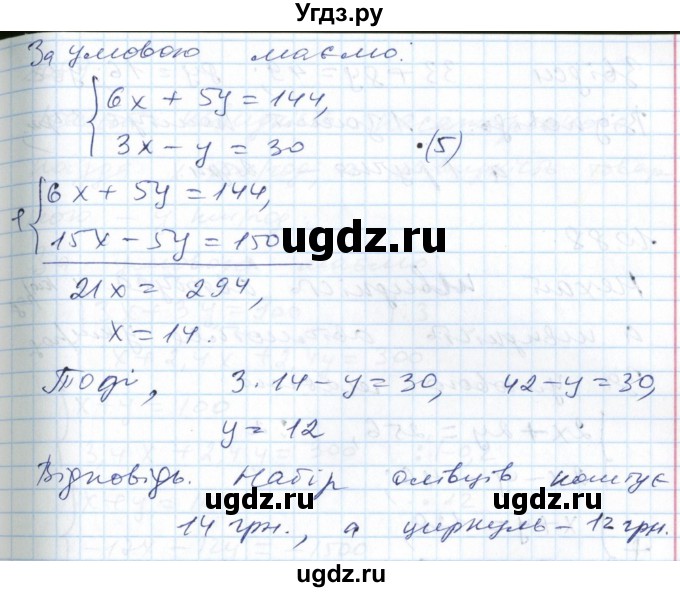 Угдз.ру
За умовою маємо:
6x + 5y = 144,
3x - y = 30 •(5)
6x + 5y = 144,
15x - 5y = 150
ugdz.ru
21x = 294,
x = 14.
Тоді, 3·14 - y = 30, 42 - y = 30,
y = 12
ugdz.ru
Відповідь. Набір олівців коштує
ugdz.ru ugdz.ru
14 грн., а циркуль – 12 грн.
ugdz.ru